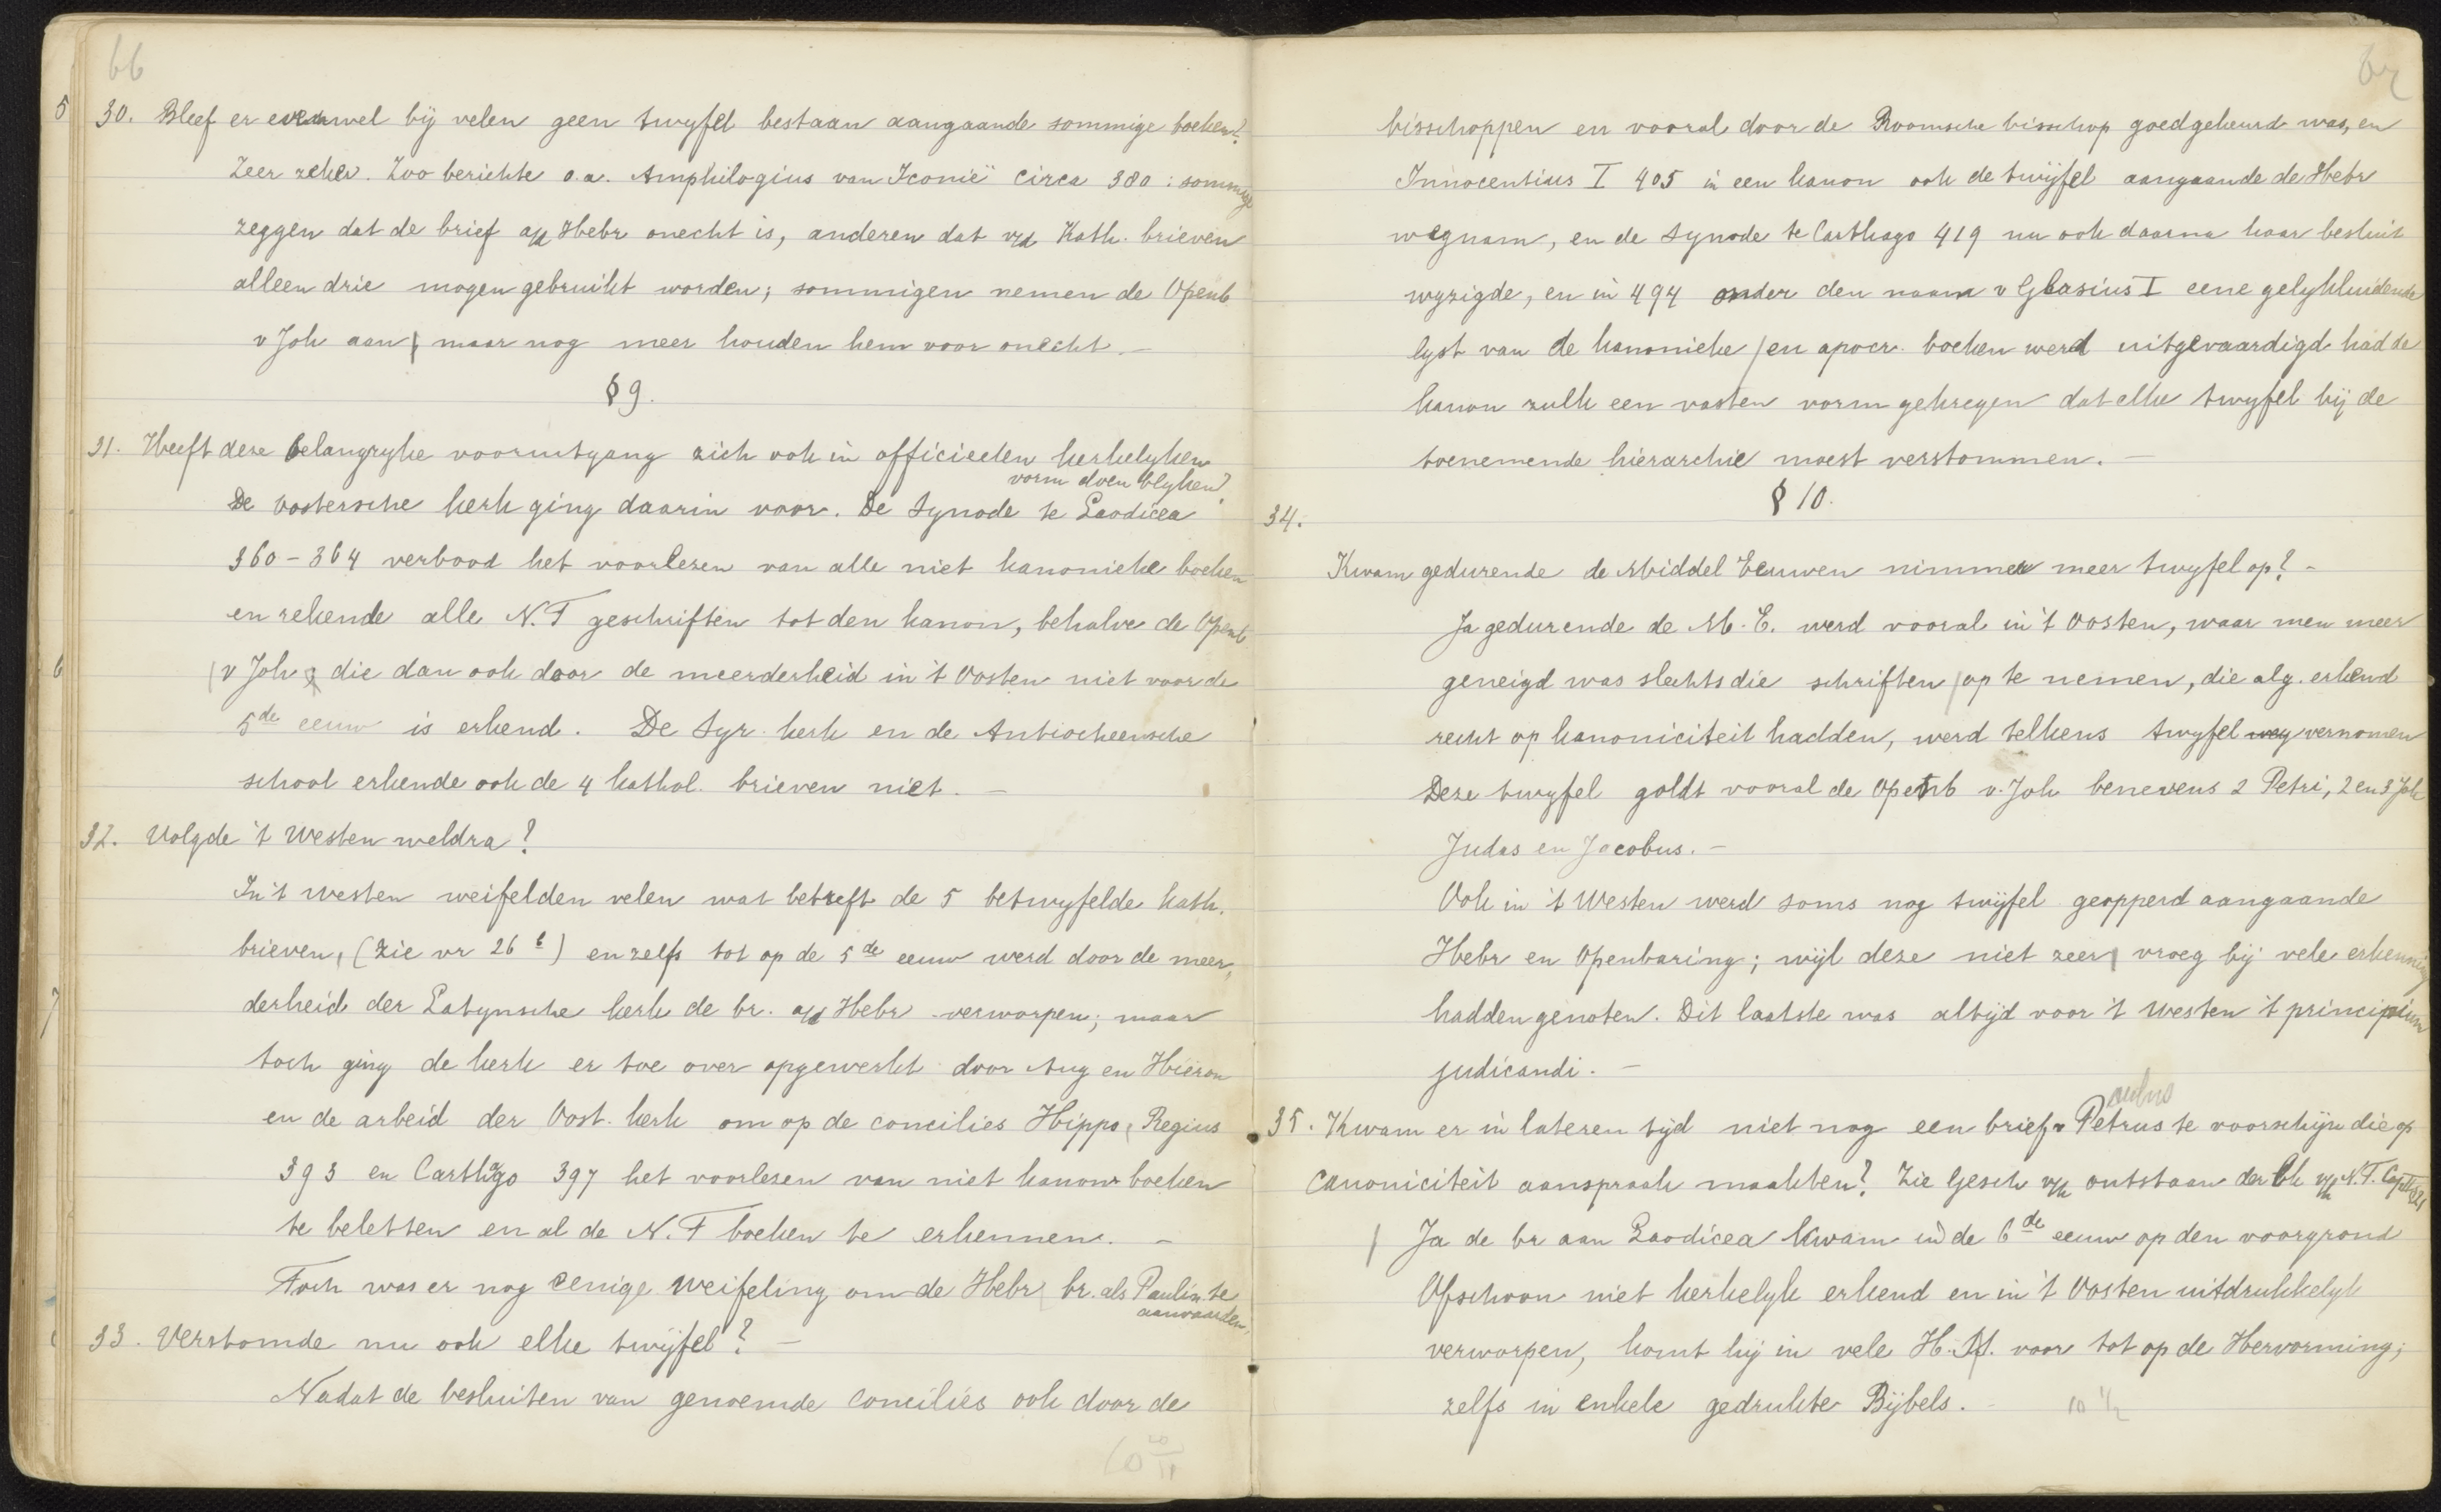 66
5 30. Bleef er evenwel bij velen geen twyfel bestaan aangaande sommige boeken?
Zeer zeker. Zoo berichte o.a. Amphilogius van Iconië circa 380 : sommige
zeggen dat de brief a/d Hebr onecht is, anderen dat v/d Kath. brieven
alleen drie mogen gebruikt worden; sommigen nemen de Openb
v Joh aan, maar nog meer houden hem voor onecht. –
§ 9.
31. Heeft deze belangryke vooruitgang zich ook in officieelen kerkelyken
vorm doen blyken?
De oostersche kerk ging daarin voor. De Synode te Laodicea
360 – 364 verbood het voorlezen van alle niet kanonieke boeken
en rekende alle N.T geschriften tot den kanon, behalve de Openb.
6 v Joh, die dan ook door de meerderheid in 't Oosten niet voor de
5de eeuw is erkend. De Syr. kerk en de Antiocheensche
school erkende ook de 4 kathol. brieven niet. –
32. Volgde 't Westen weldra?
In 't westen weifelden velen wat betreft de 5 betwyfelde kath.
brieven, (zie vr 26 b) en zelfs tot op de 5de eeuw werd door de meer,
7 derheid der Latynsche kerk de br. a/d Hebr verworpen; maar
toch ging de kerk er toe over opgewerkt door Aug en Hieron
en de arbeid der Oost. kerk om op de concilies Hippo, Regius
393 en Carthago 397 het voorlezen van niet kanon boeken
te beletten en al de N.T boeken te erkennen. –
Toch was er nog eenige weifeling om de Hebr br. als Paulin te
aanvaarden.
33. Verstomde nu ook elke twijfel? –
Nadat de besluiten van genoemde concilies ook door de
67
bisschoppen en vooral door de Roomsche bisschop goedgekeurd was, en
Innocentius I 405 in een kanon ook de twijfel aangaande de Hebr
wegnam, en de Synode te Carthago 419 nu ook daarna haar besluit
wyzigde, en in 494 onder den naam v Glasius I eene gelykluidende
lyst van de kanonieke en apocr. boeken werd uitgevaardigd had de
kanon zulk een vasten vorm gekregen dat elke twyfel bij de
toenemende hierarchie moest verstommen. –
§ 10.
34.
Kwam gedurende de Middel Eeuwen nimmer meer twyfel op? –
Ja gedurende de M. E. werd vooral in 't Oosten, waar men meer
geneigd was slechts die schriften op te nemen, die alg. erkend
recht op kanoniciteit hadden, werd telkens twyfel weg vernomen
Deze twyfel goldt vooral de Openb v. Joh benevens 2 Petri, 2 en 3 Joh
Judas en Jacobus. –
Ook in 't Westen werd soms nog twijfel geopperd aangaande
Hebr en Openbaring; wijl deze niet zeer vroeg bij vele erkenning
hadden genoten. Dit laatste was altijd voor 't Westen 't principium
judicandi. –
35. Kwam er in lateren tijd niet nog een brief v Petrus te voorschijn die op
canoniciteit aanspraak maakten? Zie Gesch v/h ontstaan der Bk v/h N.T.
Ja de br aan Laodicea kwam in de 6de eeuw op den voorgrond
Ofschoon niet kerkelyk erkend en in 't Oosten uitdrukkelyk
verworpen, komt hij in vele H. M. voor tot op de Hervorming;
zelfs in enkele gedrukte Bijbels. 10 1/2